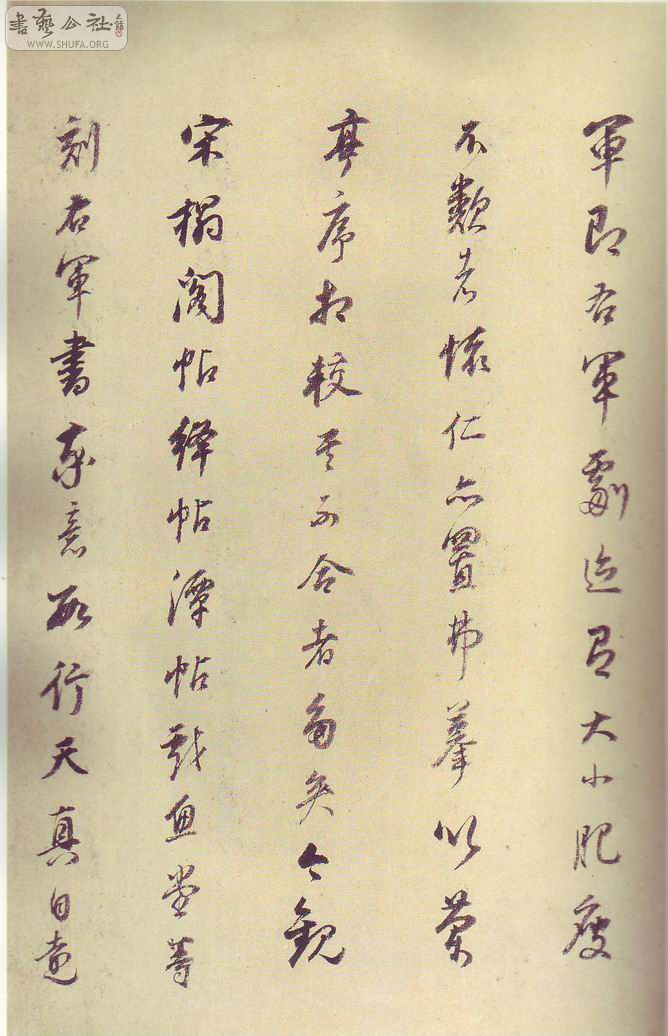 軍即右軍劇迹有大小肥瘦
不類者懷仁亦置弗摹以蘭
亭序相較其不合者多矣今觀
宋榻閣帖絳帖潭帖戲魚堂等
刻右軍書友意數行天真自遠
書藝公社
WWW.SHUFA.ORG